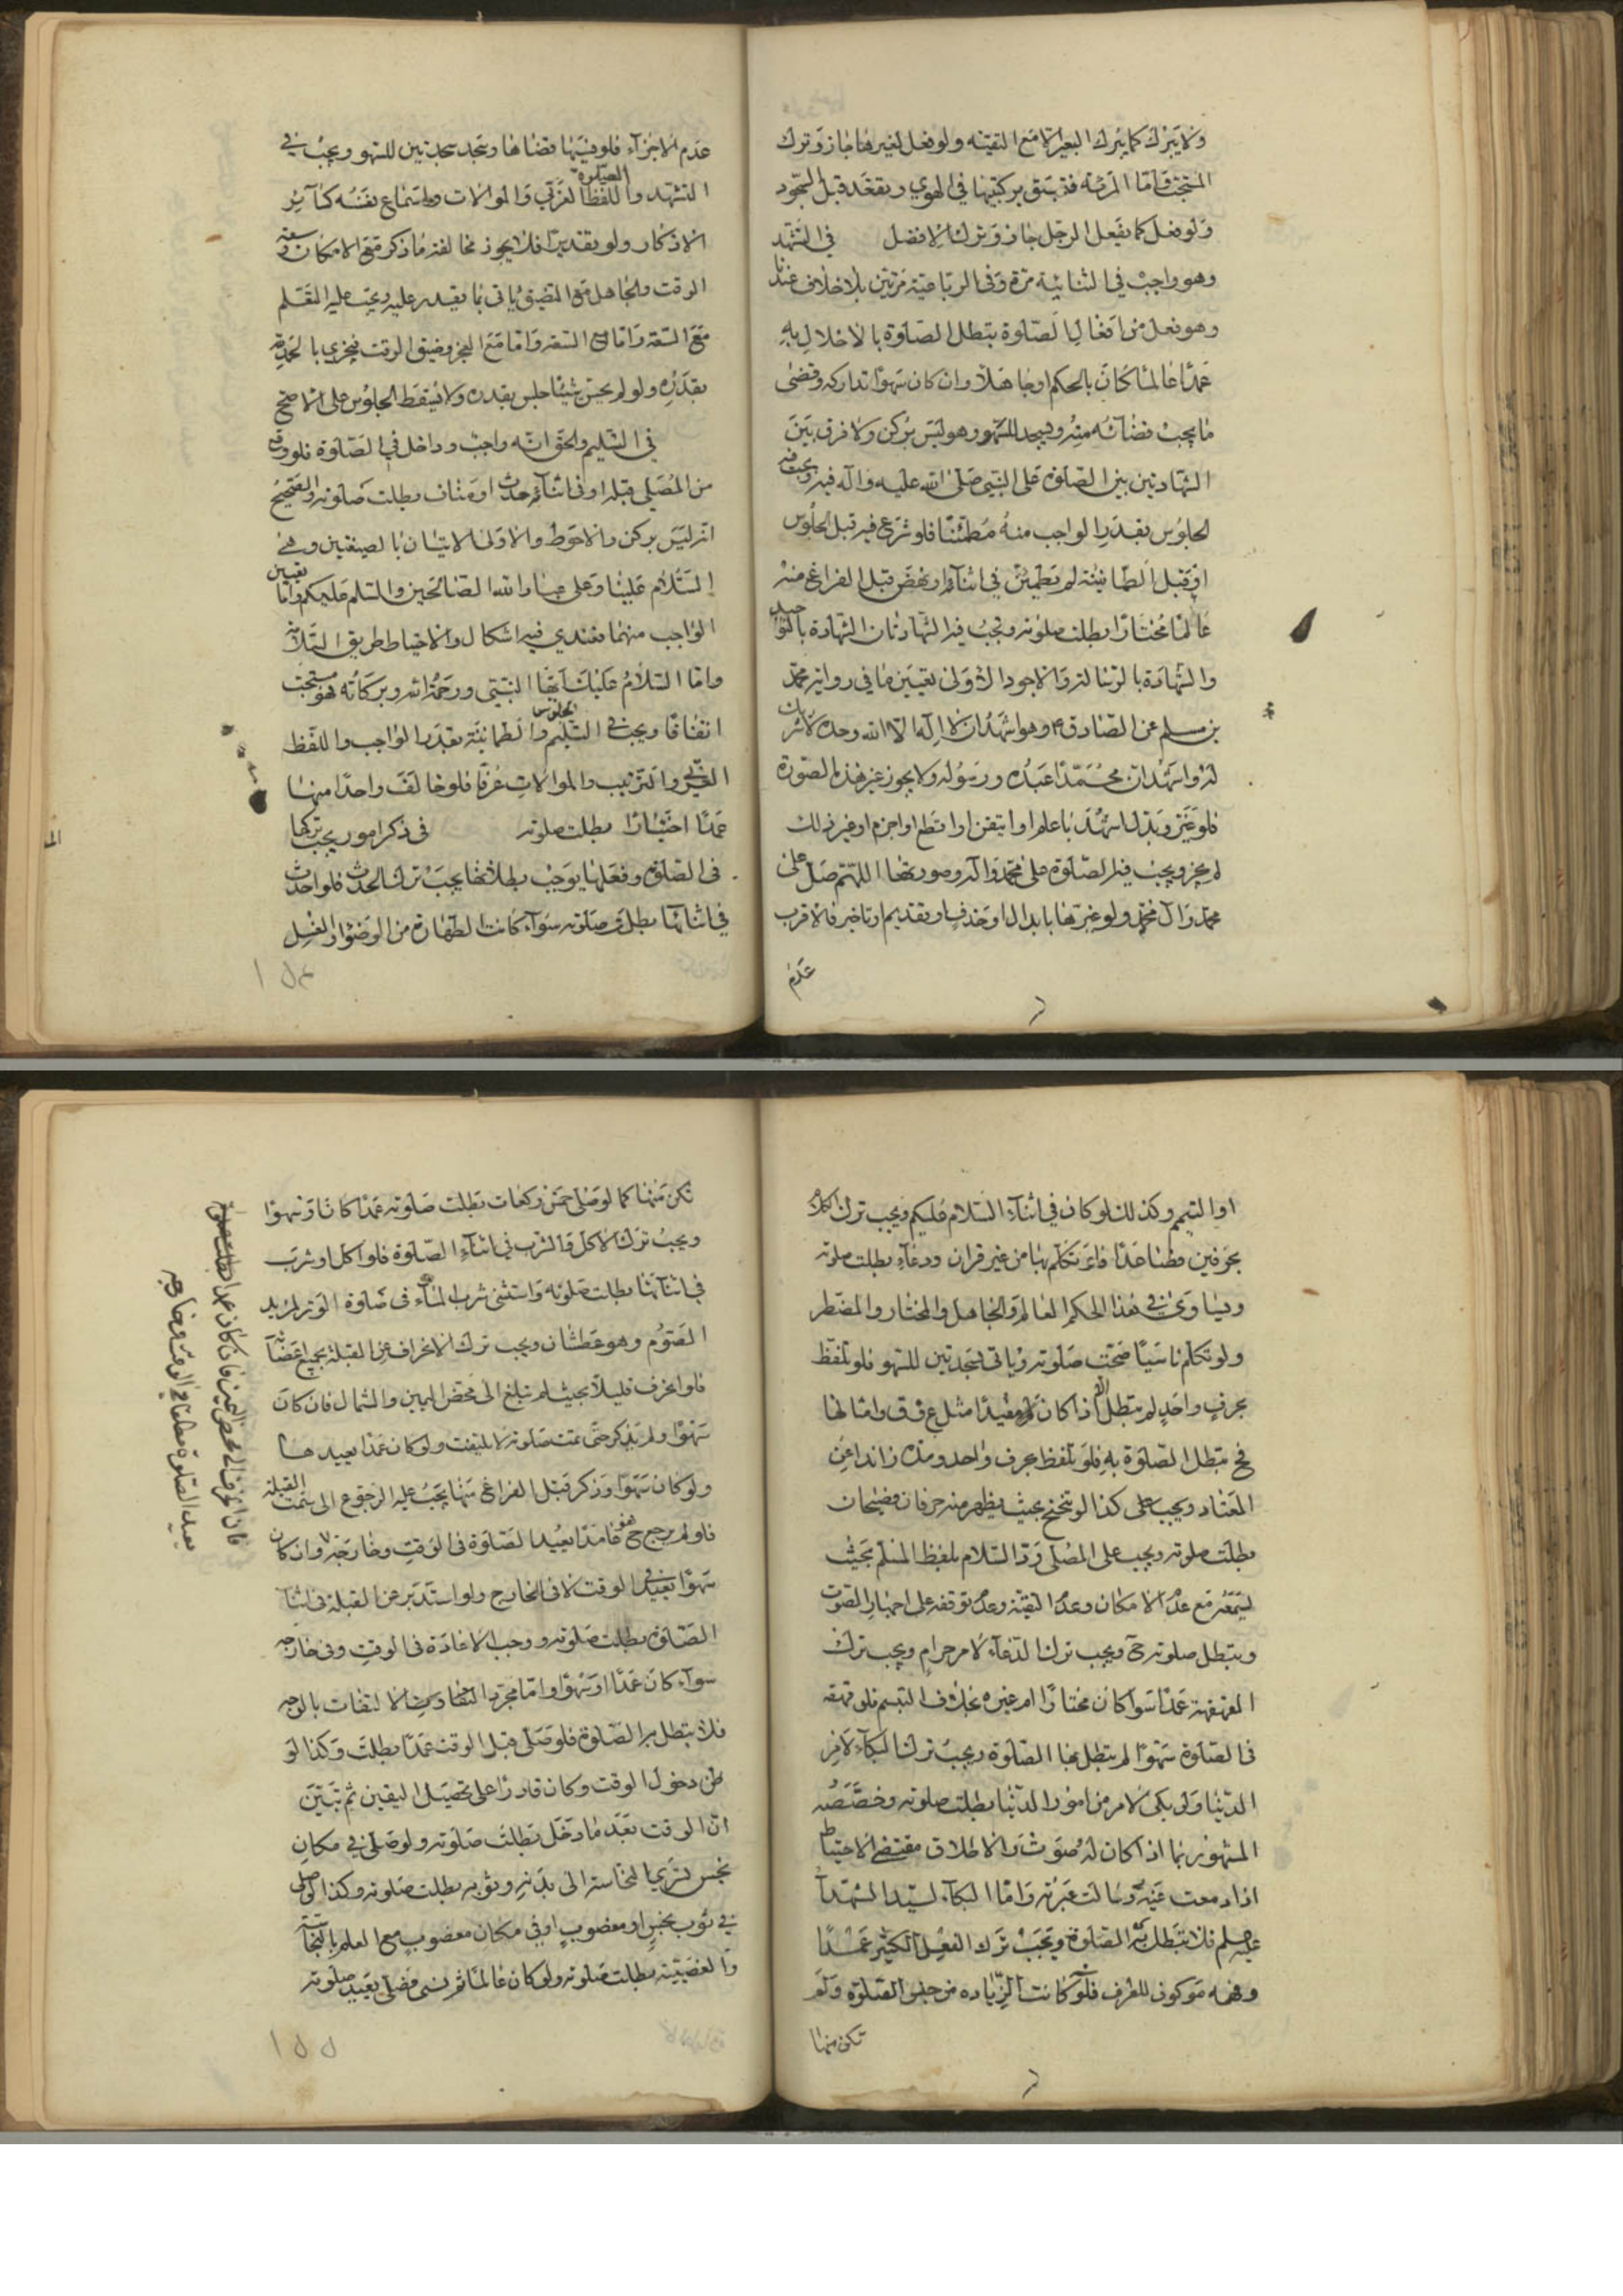 ولا يبرك كما يبرك البعير الا مع التقية ولو فعل لغيرها جاز وترك
المستحب واما المرئة فتسبق بركبتيها في الهوي وتقعد قبل السجود
ولو فعل كما يفعل الرجل جاز وترك الافضل في التشهد
وهو واجب في الثنائية مرة وفي الرباعية مرتين بلا خلاف عندنا
وهو فعل من افعال الصلوة تبطل الصلوة بالاخلال به
عمدا عالما كان بالحكم او جاهلا وان كان سهوا تداركه وقضى
ما يجب قضائه منه ويسجد للسهو وهو ليس بركن ولا فرق بين
الشهادتين بين الصلوة على النبي صلى الله عليه وآله فيه ويجب فيه
الجلوس بقدر الواجب منه مطمئنا فلو شرع فيه قبل الجلوس
او قبل الطمانينة لم تطمئن في اثنائه او نهض قبل الفراغ منه
عالما مختارا بطلت صلوته وتجب فيه الشهادتان الشهادة بالتوحيد
والشهادة بالرسالة والاجود الاولى تعيين ما في رواية محمد
بن مسلم عن الصادق ع وهو اشهد ان لا اله الا الله وحده لا شريك
له واشهد ان محمدا عبده ورسوله ولا يجوز غير هذه الصورة
فلو غير وبدل اشهد باعلم او اتيقن او اقطع او اجزم او غير ذلك
لم يجز ويجب فيه الصلوة على محمد وآله وصورتها اللهم صل على
محمد وآل محمد ولو غيرها بابدال او حذف او تقديم او تاخير فالاقرب
عدم
عدم الاجزآء فلو نسيها قضاها وسجد سجدتين للسهو ويجب في
التشهد والصلوة اللفظ العربي والموالات واستماع نفسه كسآئر
الاذكار ولو تقديرا فلا يجوز مخالفة ما ذكر مع الامكان وسعة
الوقت والجاهل مع الضيق ياتي بما يقدر عليه ويجب عليه التعلم
مع السعة واما مع السعة واما مع العجز وضيق الوقت فيجزي بالحمد
بقدره ولو لم يحسن شيئا جلس بقدره ولا يسقط الجلوس على الاصح
في التسليم والحق انه واجب وداخل في الصلوة فلو وقع
من المصلي قبله او في اثنائه حدث او مناف بطلت صلوته والصحيح
انه ليس بركن والاحوط والاولى الاتيان بالصيغتين وهي
السلام علينا وعلى عباد الله الصالحين والسلم عليكم واما تعيين
الواجب منهما فعندي فيه اشكال والاحتياط طريق السلامة
واما السلام عليك ايها النبي ورحمة الله وبركاته فهو مستحب
اتفاقا ويجب في التسليم الجلوس والطمانينة بقدر الواجب واللفظ
العربي والترتيب والموالات عرفا فلو خالف واحدا منها
عمدا اختيارا بطلت صلوته في ذكر امور يجب تركها
في الصلوة وفعلها يوجب بطلانها يجب ترك الحدث فلو احدث
في اثنائها بطلت صلوته سوآء كانت الطهارة من الوضوء او الغسل
او التيمم وكذلك لو كان في اثناء السلام عليكم ويجب ترك الكلام
بحرفين فصاعدا فان تكلم بها من غير قران ودعآء بطلت صلوته
ويساوي في هذا الحكم العالم والجاهل والمختار والمضطر
ولو تكلم ناسيا صحت صلوته وياتي بسجدتين للسهو فلو تلفظ
بحرف واحد لم تبطل الا اذا كان مفيدا مثل ع وق وامثالها
فح تبطل الصلوة به فلو تلفظ بحرف واحد ومده زائدا عن
المعتاد ويجب على كذا لو تنحنح بحيث يظهر منه حرفان فصيحان
بطلت صلوته ويجب على المصلي رد السلام بلفظ المسلم بحيث
يسمعه مع عدم الامكان وعدم التقية وعدم توقفه على اجهار الصوت
وتبطل صلوته ح ويجب ترك الدعآء لامر حرام ويجب ترك
القهقهة عمدا سوآء كان مختارا ام غيره بخلاف التبسم فلو قهقه
في الصلوة سهوا لم تبطل بها الصلوة ويجب ترك البكآء لامر
الدنيا ولو بكى لامر من امور الدنيا بطلت صلوته وخصصه
المشهور بما اذا كان له صوت والاطلاق مقتضى الاحتياط
اذا دمعت عينه وسالت عبرته واما البكآء لسيد الشهدآء
عليه السلم فلا تبطل به الصلوة ويجب ترك الفعل الكثير عمدا
وفهمه موكول للعرف فلو كانت الزيادة من جنس الصلوة ولم
تكن منها
تكن منها كما لو صلى خمس ركعات بطلت صلوته عمدا كان او سهوا
ويجب ترك الاكل والشرب في اثنآء الصلوة فلو اكل او شرب
في اثنائها بطلت صلوته واستثني شرب المآء في صلوة الوتر لمريد
الصوم وهو عطشان ويجب ترك الانحراف عن القبلة بجميع اعضائه
فلو انحرف قليلا بحيث لم تبلغ الى محض اليمين والشمال فان كان
سهوا ولم يذكر حتى تمت صلوته لا يلتفت ولو كان عمدا يعيدها
ولو كان سهوا وذكر قبل الفراغ منها يجب عليه الرجوع الى سمت القبلة
فلو لم يرجع ح فهو عامدا يعيد الصلوة في الوقت وخارجه وان كان
سهوا يعيد في الوقت لا في الخارج ولو استدبر عن القبلة في اثناء
الصلوة بطلت صلوته ووجب الاعادة في الوقت وفي خارجه
سوآء كان عمدا او سهوا واما مجرد الالتفات بالوجه
فلا تبطل به الصلوة فلو صلى قبل الوقت عمدا بطلت وكذا لو
ظن دخول الوقت وكان قادرا على تحصيل اليقين ثم تبين
ان الوقت بعد ما دخل بطلت صلوته ولو صلى في مكان
نجس تسري النجاسة الى بدنه وثوبه بطلت صلوته وكذا لو صلى
في ثوب نجس او مغصوب او في مكان مغصوب مع العلم بالنجاسة
والغصبية بطلت صلوته ولو كان عالما ثم نسي فصلى يعيد صلوته
فان انحرف الى محض اليمين فان كان عمدا بطلت صلوته
يعيد الصلوة مطلقا في الوقت وخارجه